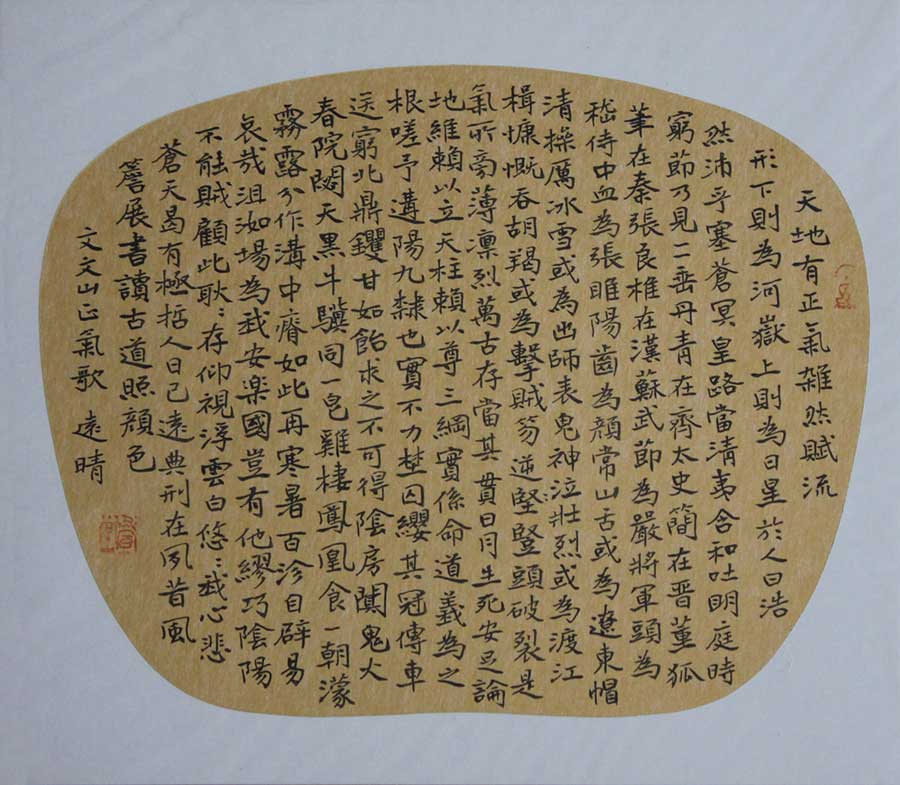 天地有正氣雜然賦流
形下則為河嶽上則為日星於人曰浩
然沛乎塞蒼冥皇路當清夷含和吐明庭時
窮節乃見一一垂丹青在齊太史簡在晋董狐
筆在秦張良椎在漢蘇武節為嚴將軍頭為
嵇侍中血為張睢陽齒為顔常山舌或為遼東帽
清操厲冰雪或為出師表鬼神泣壯烈或為渡江
楫慷慨吞胡羯或為擊賊笏逆竪頭破裂是
氣所旁薄凜烈萬古存當其貫日月生死安足論
地維賴以立天柱賴以尊三綱實係命道義為之
根嗟予遘陽九隸也實不力楚囚纓其冠傳車
送窮北鼎鑊甘如飴求之不可得陰房闃鬼火
春院閟天黑牛驥同一皂雞棲鳳凰食一朝濛
霧露分作溝中瘠如此再寒暑百沴自辟易
哀哉沮洳場為我安樂國豈有他繆巧陰陽
不能賊顧此耿〻存仰視浮雲白悠〻我心悲
蒼天曷有極哲人日已遠典刑在夙昔風
簷展書讀古道照顔色
文文山正氣歌 遠晴